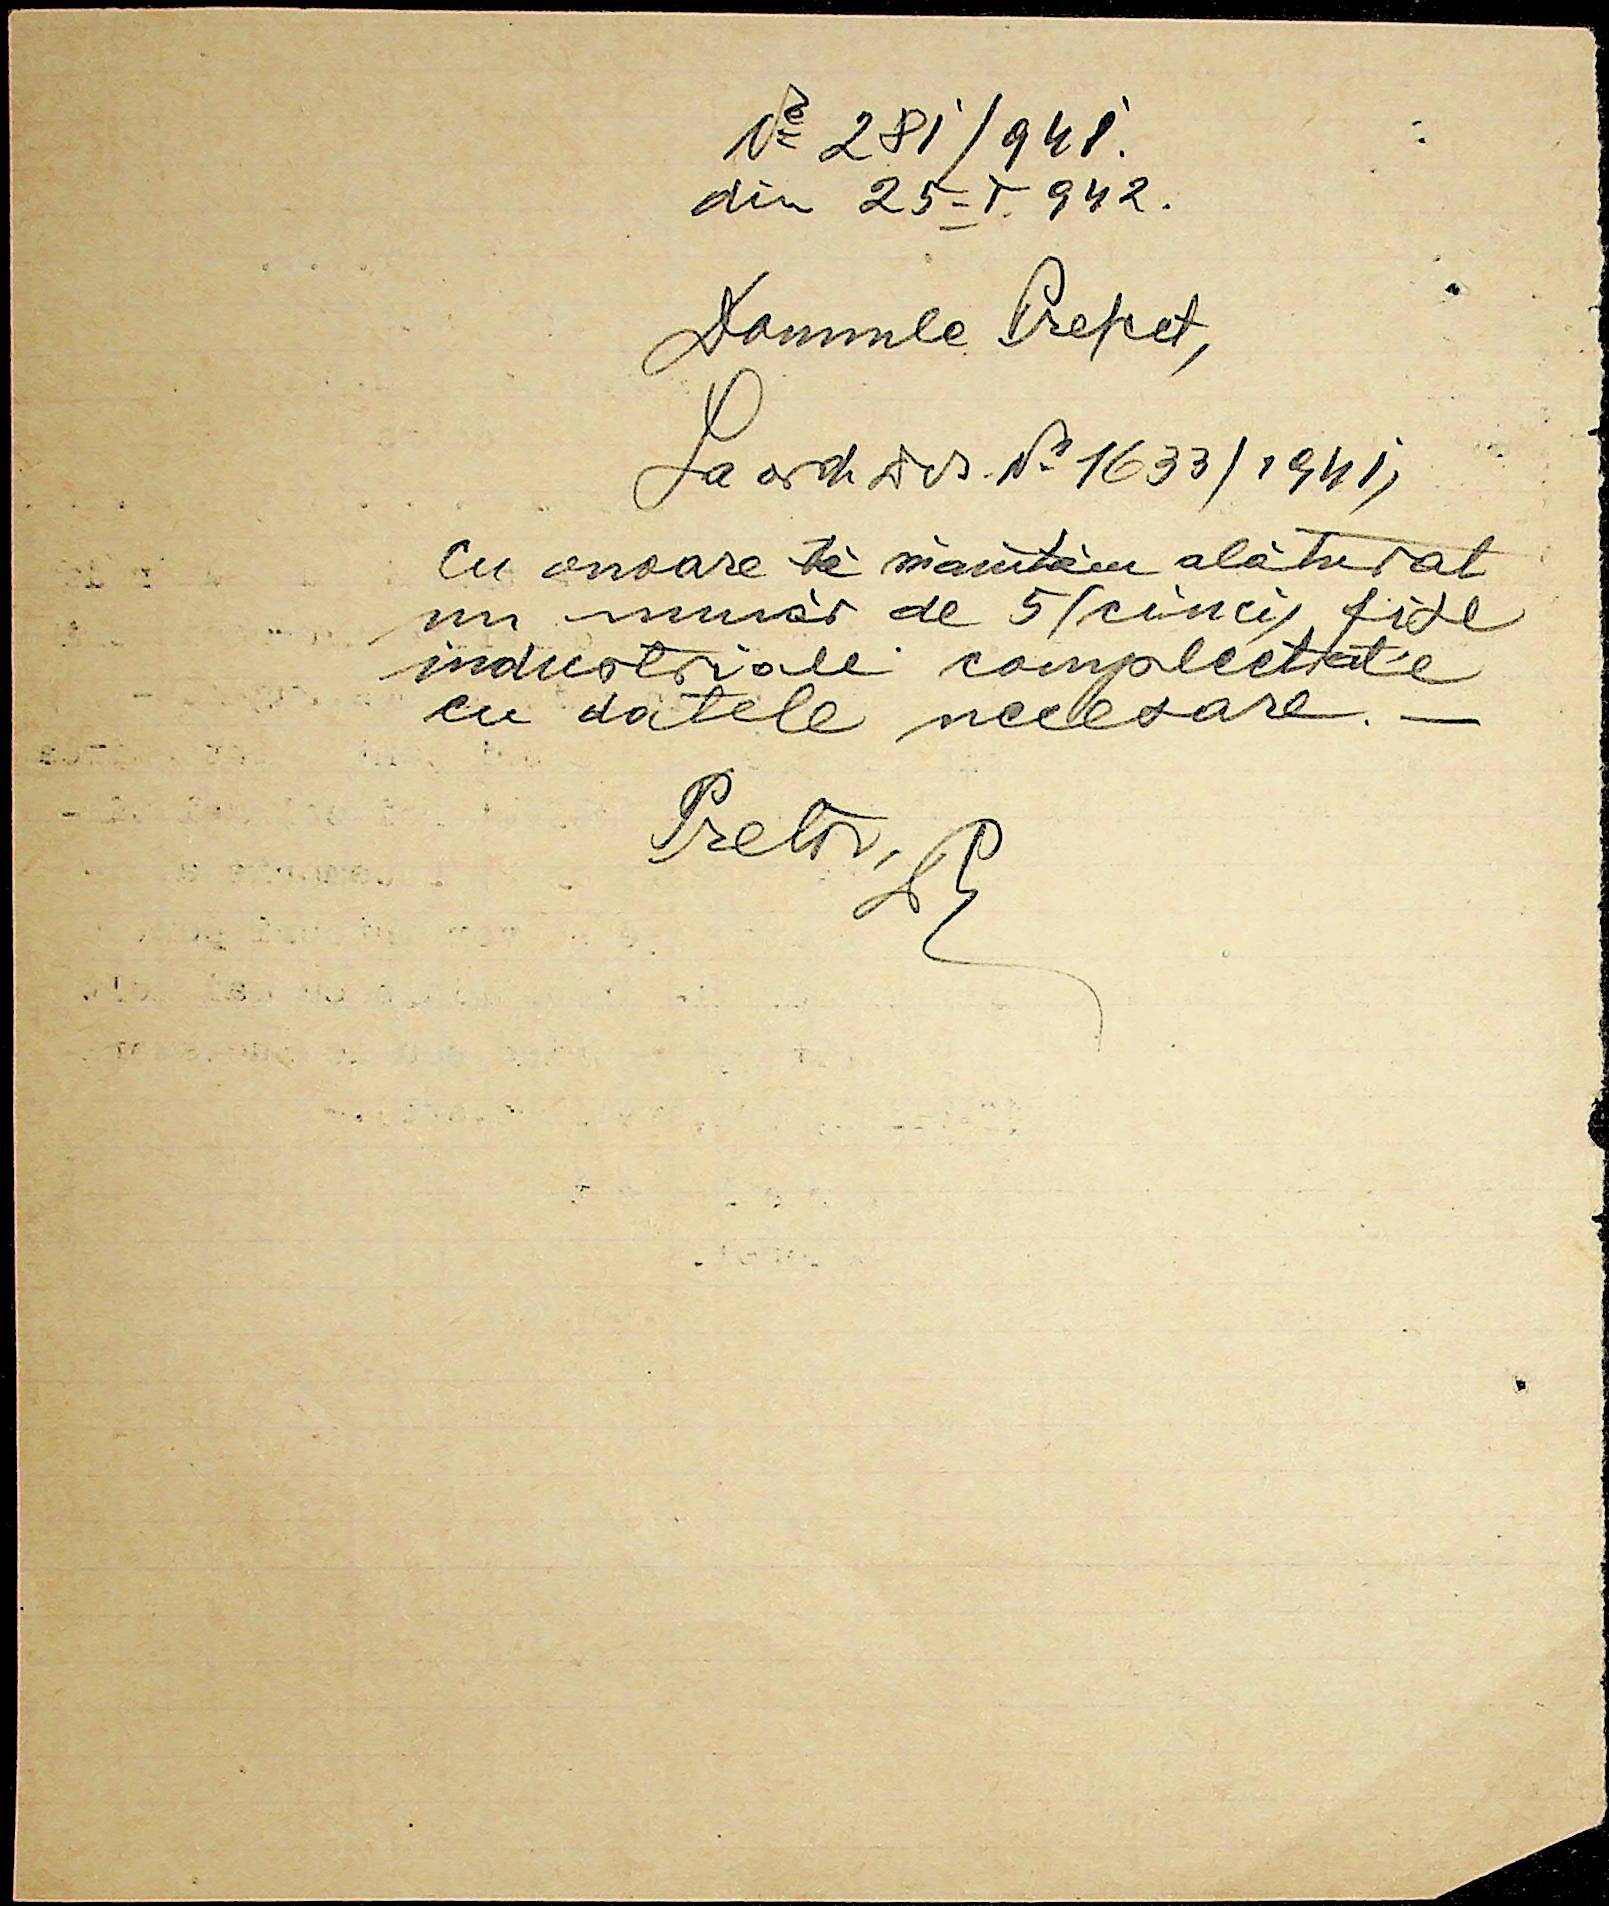 № 281/941.
din 25-I-942.
Domnule Prefect,
La ord. Dvs. № 1633/1941,
Cu onoare vă înaintăm alăturat
un număr de 5/cinci/ fișe
industriale complectate
cu datele necesare. —
Pretor,